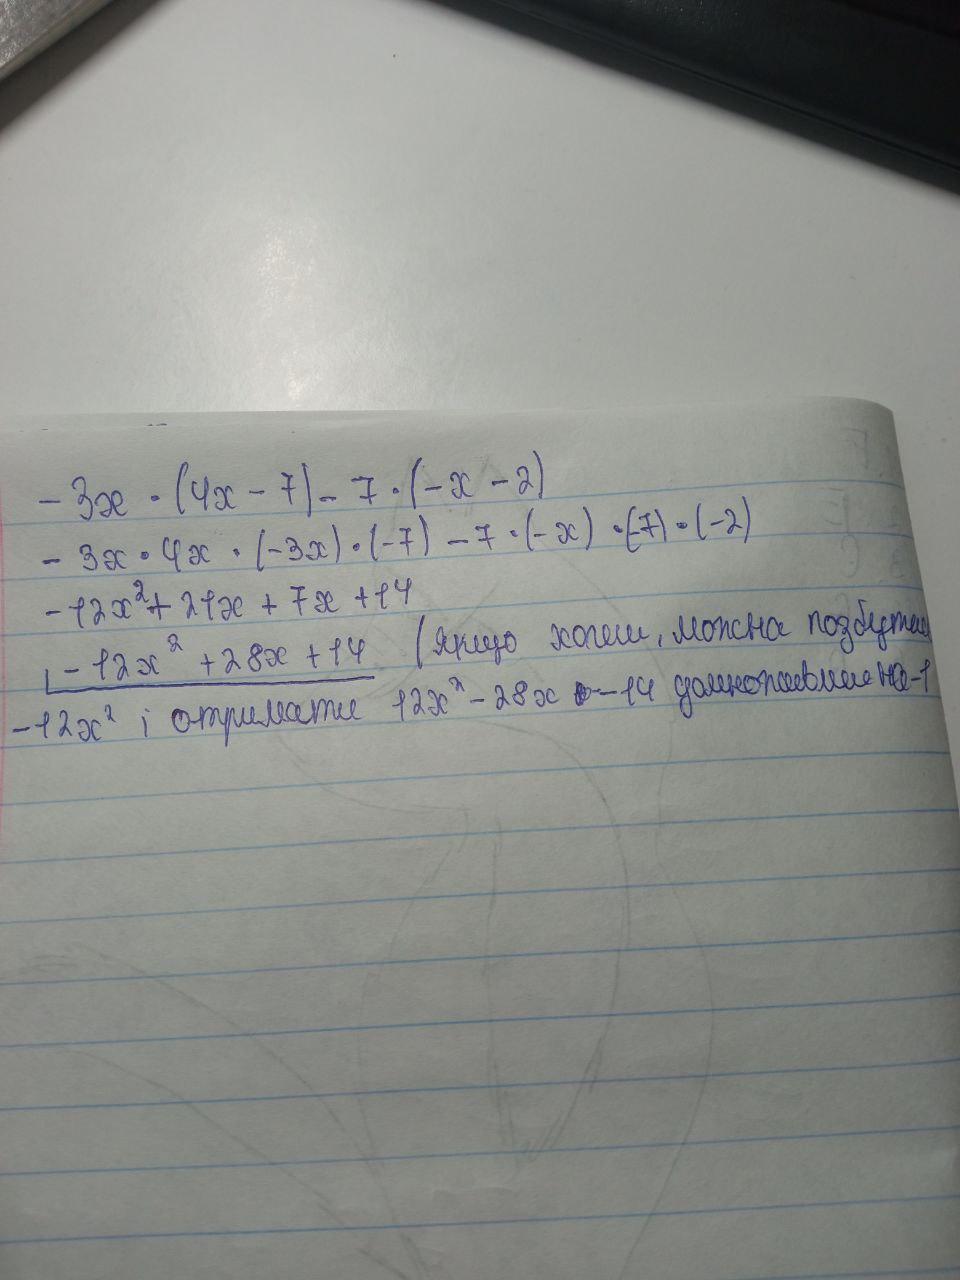 -3x · (4x - 7) - 7 · (-x - 2)
- 3x · 4x · (-3x) · (-7) - 7 · (-x) · (-7) · (-2)
-12x² + 21x + 7x + 14
-12x² + 28x + 14 (якщо хочеш, можна позбутися
-12x² і отримати 12x² - 28x - 14 домноживши на -1